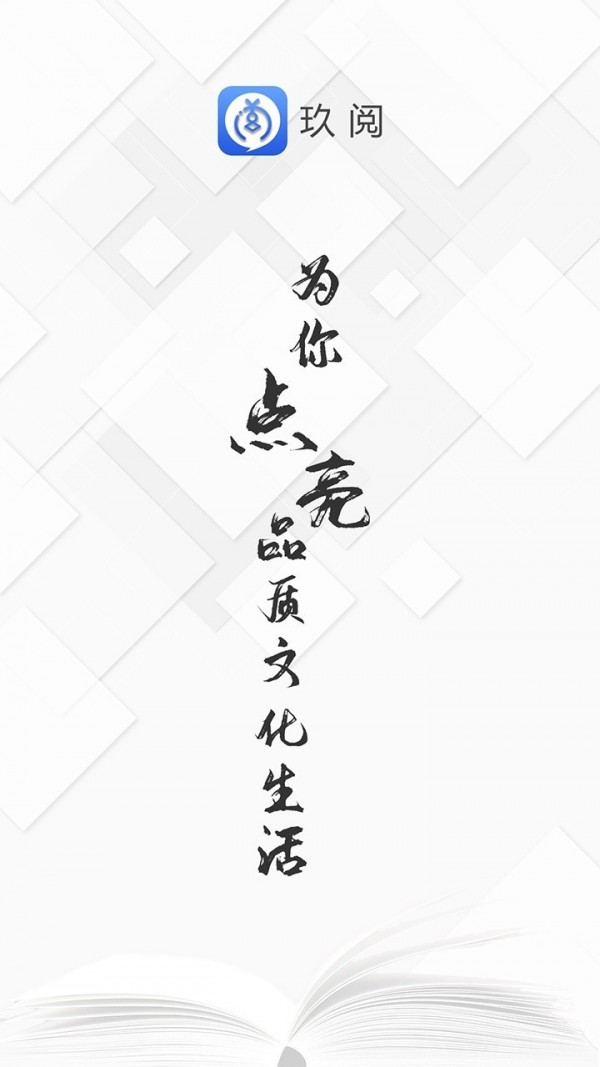 玖阅
为你点亮品质文化生活